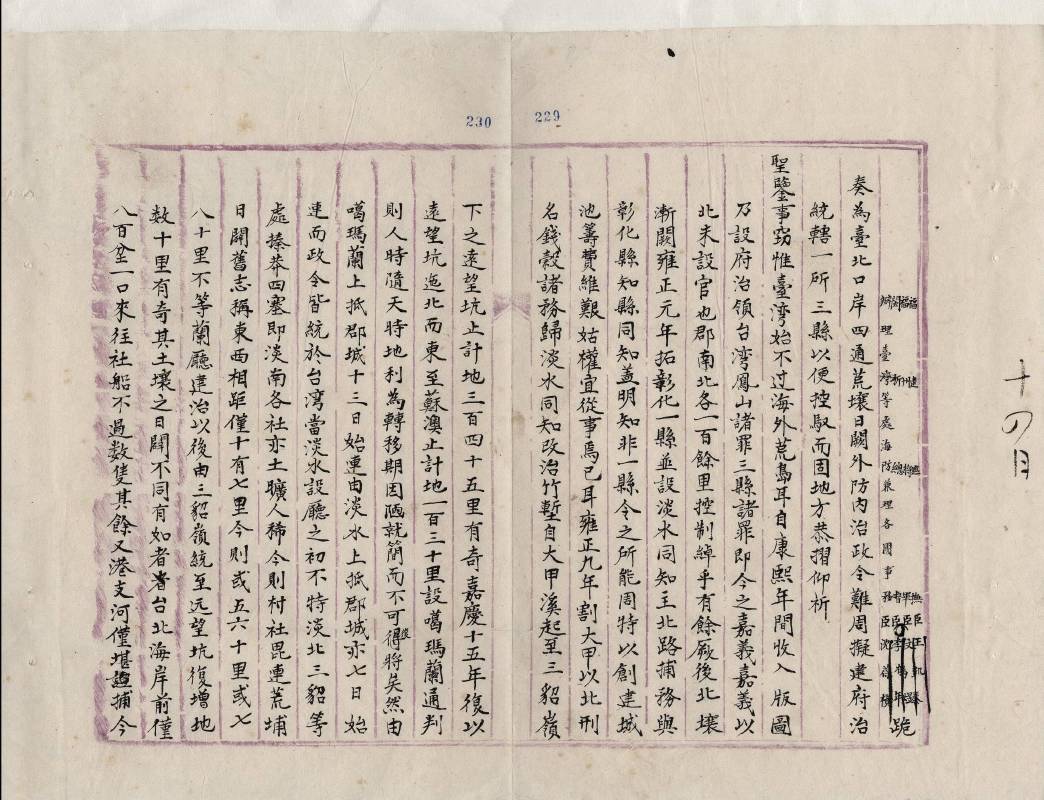 十四日
229
理臺灣等處海防兼理各國事務臣沈葆楨跪
奏為臺北口岸四通荒壤日闢外防內治政令難周擬建府治
統轄一所三縣以便控馭而固地方恭摺仰祈
聖鑒事窃惟臺灣始不过海外荒島耳自康熙年間收入版圖
乃設府治領台湾鳳山諸罪三縣諸罪即今之嘉義嘉義以
北未設官也郡南北各一百餘里控制綽乎有餘厥後北壤
漸闢雍正元年拓彰化一縣並設淡水同知主北路捕務與
彰化縣知縣同知盖明知非一縣令之所能周特以創建城
池籌費維艱姑權宜從事焉已耳雍正九年割大甲以北刑
名錢穀諸務歸淡水同知改治竹塹自大甲溪起至三貂嶺
230
下之遠望坑止計地三百四十五里有奇嘉慶十五年復以
遠望坑迤北而東至蘇澳止計地一百三十里設噶瑪蘭通判
則人時隨天時地利為轉移期因陋就簡而不可得將矣然由
噶瑪蘭上抵郡城十三日始達由淡水上抵郡城亦七日始
達而政令皆統於台湾當淡水設廳之初不特淡北三貂等
處搸莽四塞即淡南各社亦土曠人稀今則村社毘連荒埔
日闢舊志稱東西相距僅十有七里今則或五六十里或七
八十里不等蘭廳建治以後由三貂嶺統至远望坑復增地
数十里有奇其土壤之日闢不同有如者台北海岸前僅
八百坌一口來往社船不過数隻其餘叉港支河僅堪漁捕今